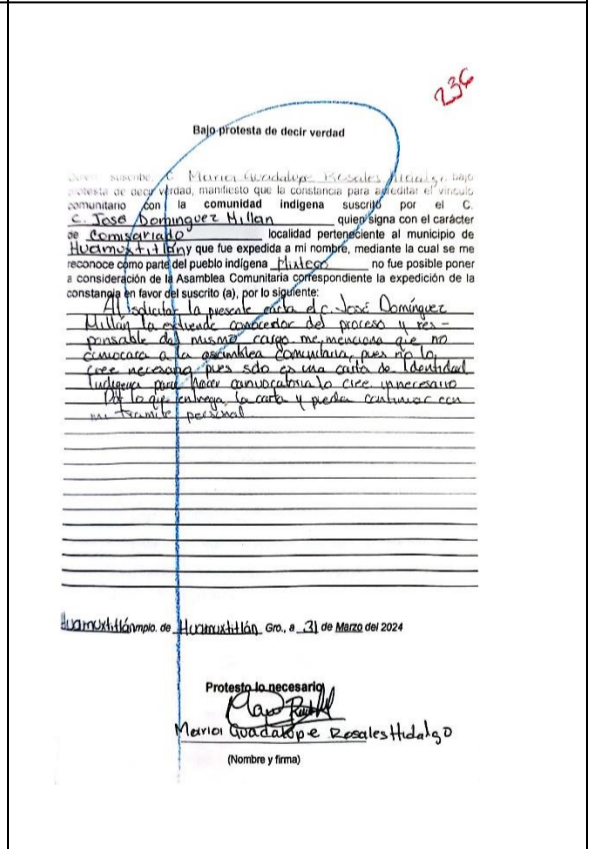 236
Bajo protesta de decir verdad
suscribe, C. Maria Guadalupe Rosales Hidalgo, bajo
protesta de decir verdad, manifiesto que la constancia para acreditar el vínculo
comunitario con la comunidad indígena suscrito por el C.
C. José Dominguez Millan quien signa con el carácter
de Comisariado localidad perteneciente al municipio de
Huamuxtitlán y que fue expedida a mi nombre, mediante la cual se me
reconoce como parte del pueblo indígena Mixteco no fue posible poner
a consideración de la Asamblea Comunitaria correspondiente la expedición de la
constancia en favor del suscrito (a), por lo siguiente:
Al solicitar la presente carta el c. José Domínguez
Millán la extiende conocedor del proceso y res-
ponsable del mismo cargo me menciona que no
convocara a la asamblea comunitaria, pues no lo
cree necesario pues solo es una carta de Identidad
Indigena para hacer convocatoria lo cree innecesario
Por lo que entrega la carta y pueda continuar con
mi tramite personal
Huamuxtitlán mpio. de Huamuxtitlán Gro., a 31 de Marzo del 2024
Protesto lo necesario
Maria Guadalupe Rosales Hidalgo
(Nombre y firma)